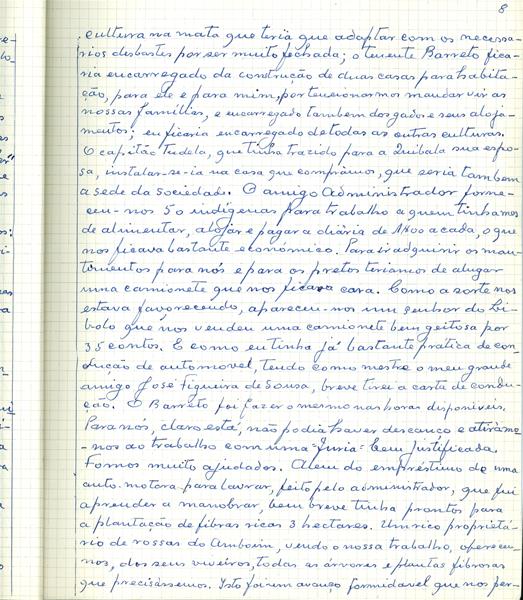 8
cultura na mata que teria que adaptar com os necessa-
rios desbastes por ser muito fechada; o tenente Barreto fica-
ria encarregado da construção de duas casas para habita-
ção, para ele e para mim, por tencionarmos mandar vir as
nossas famílias, e encarregado tambem dos gados e seus aloja-
mentos; eu ficaria encarregado de todas as outras culturas.
O capitão Tudela, que tinha trazido para a Quibala sua espo-
sa, instalar-se-ia na casa que comprámos, que seria tambem
a sede da Sociedade. O amigo Administrador forne-
ceu-nos 50 indígenas para trabalho a quem tinhamos
de alimentar, alojar e pagar a diária de 1$00 a cada, o que
nos ficava bastante económico. Para ir adquirir os man-
timentos para nós e para os pretos teriamos de alugar
uma camionete que nos ficava cara. Como a sorte nos
estava favorecendo, apareceu-nos um senhor do Li-
bolo que nos vendeu uma camionete bem geitosa por
35 contos. E como eu tinha já bastante pratica de con-
dução de automovel, tendo como mestre o meu grande
amigo José Figueira de Sousa, breve tirei a carta de condu-
ção. O Barreto foi fazer o mesmo nas horas disponíveis.
Para nós, claro está, não podia haver descanço e atiráme-
nos ao trabalho com uma "furia" bem justificada.
Fomos muito ajudados. Alem do empréstimo de uma
auto-motora para lavrar, feito pelo administrador, que fui
aprender a manobrar, bem breve tinha prontos para
a plantação de fibras ricas 3 hectares. Um rico proprietá-
rio de rossas do Amboim, vendo o nosso trabalho, oferece-
nos, dos seus viveiros, todas as árvores e plantas fibrosas
que precisássemos. Isto foi um avanço formidavel que nos per-